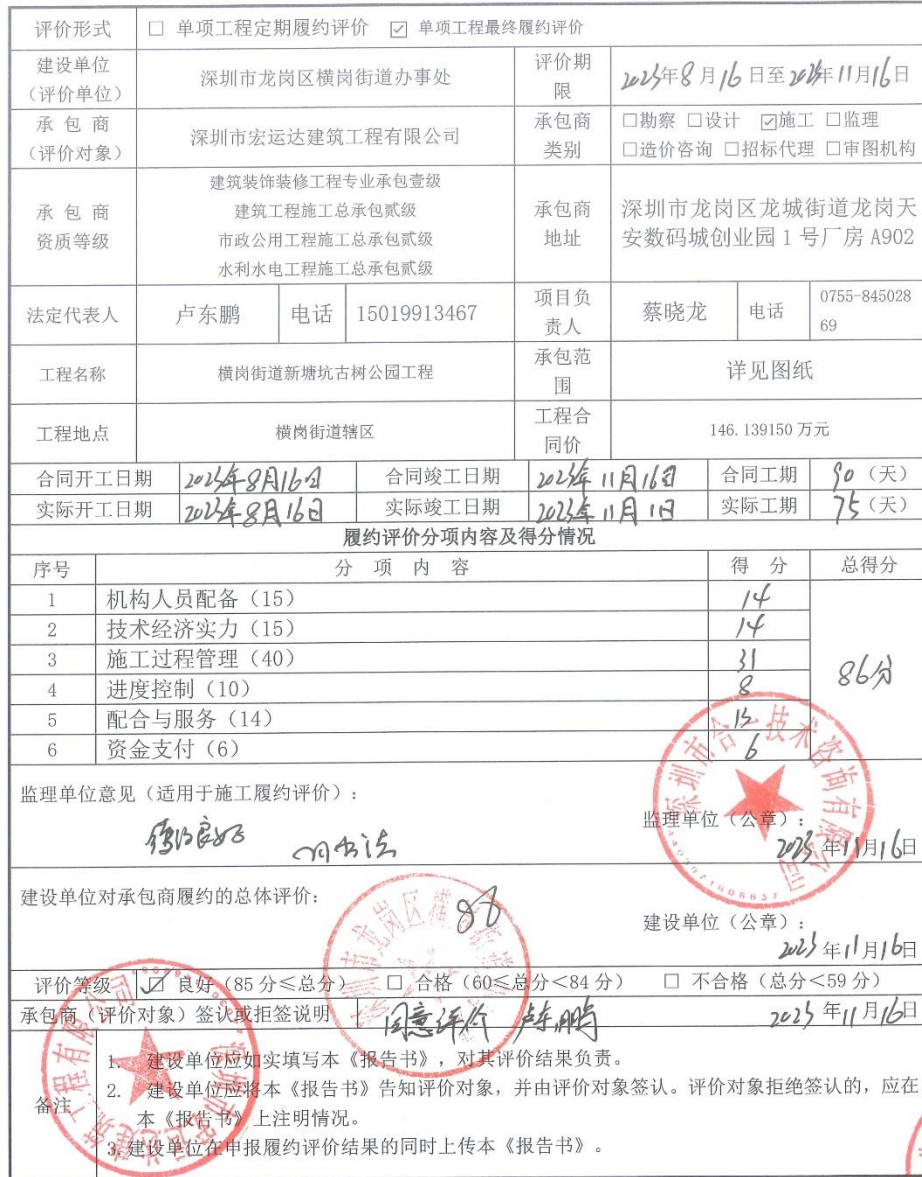 评价形式 □ 单项工程定期履约评价 ☑ 单项工程最终履约评价
建设单位（评价单位） 深圳市龙岗区横岗街道办事处 评价期限 2023年8月16日至2023年11月16日
承包商（评价对象） 深圳市宏运达建筑工程有限公司 承包商类别 □勘察 □设计 ☑施工 □监理
□造价咨询 □招标代理 □审图机构
承包商资质等级
建筑装饰装修工程专业承包壹级
建筑工程施工总承包贰级
市政公用工程施工总承包贰级
水利水电工程施工总承包贰级
承包商地址
深圳市龙岗区龙城街道龙岗天
安数码城创业园 1 号厂房 A902
法定代表人 卢东鹏 电话 15019913467 项目负责人 蔡晓龙 电话 0755-84502869
工程名称 横岗街道新塘坑古树公园工程 承包范围 详见图纸
工程地点 横岗街道辖区 工程合同价 146.139150 万元
合同开工日期 2023年8月16日 合同竣工日期 2023年11月16日 合同工期 90（天）
实际开工日期 2023年8月16日 实际竣工日期 2023年11月1日 实际工期 75（天）
履约评价分项内容及得分情况
序号 分项内容 得分 总得分
1 机构人员配备（15） 14
2 技术经济实力（15） 14
3 施工过程管理（40） 31
4 进度控制（10） 8
5 配合与服务（14） 13
6 资金支付（6） 6
86分
监理单位意见（适用于施工履约评价）：
监理单位（公章）：
2023年11月16日
深圳市合一技术咨询有限公司
建设单位对承包商履约的总体评价：
建设单位（公章）：
2023年11月16日
评价等级 ☑ 良好（85 分≤总分） □ 合格（60≤总分＜84 分） □ 不合格（总分＜59 分）
承包商（评价对象）签认或拒签说明 同意评价 卢东鹏 2023年11月16日
备注
1. 建设单位应如实填写本《报告书》，对其评价结果负责。
2. 建设单位应将本《报告书》告知评价对象，并由评价对象签认。评价对象拒绝签认的，应在
本《报告书》上注明情况。
3.建设单位在申报履约评价结果的同时上传本《报告书》。